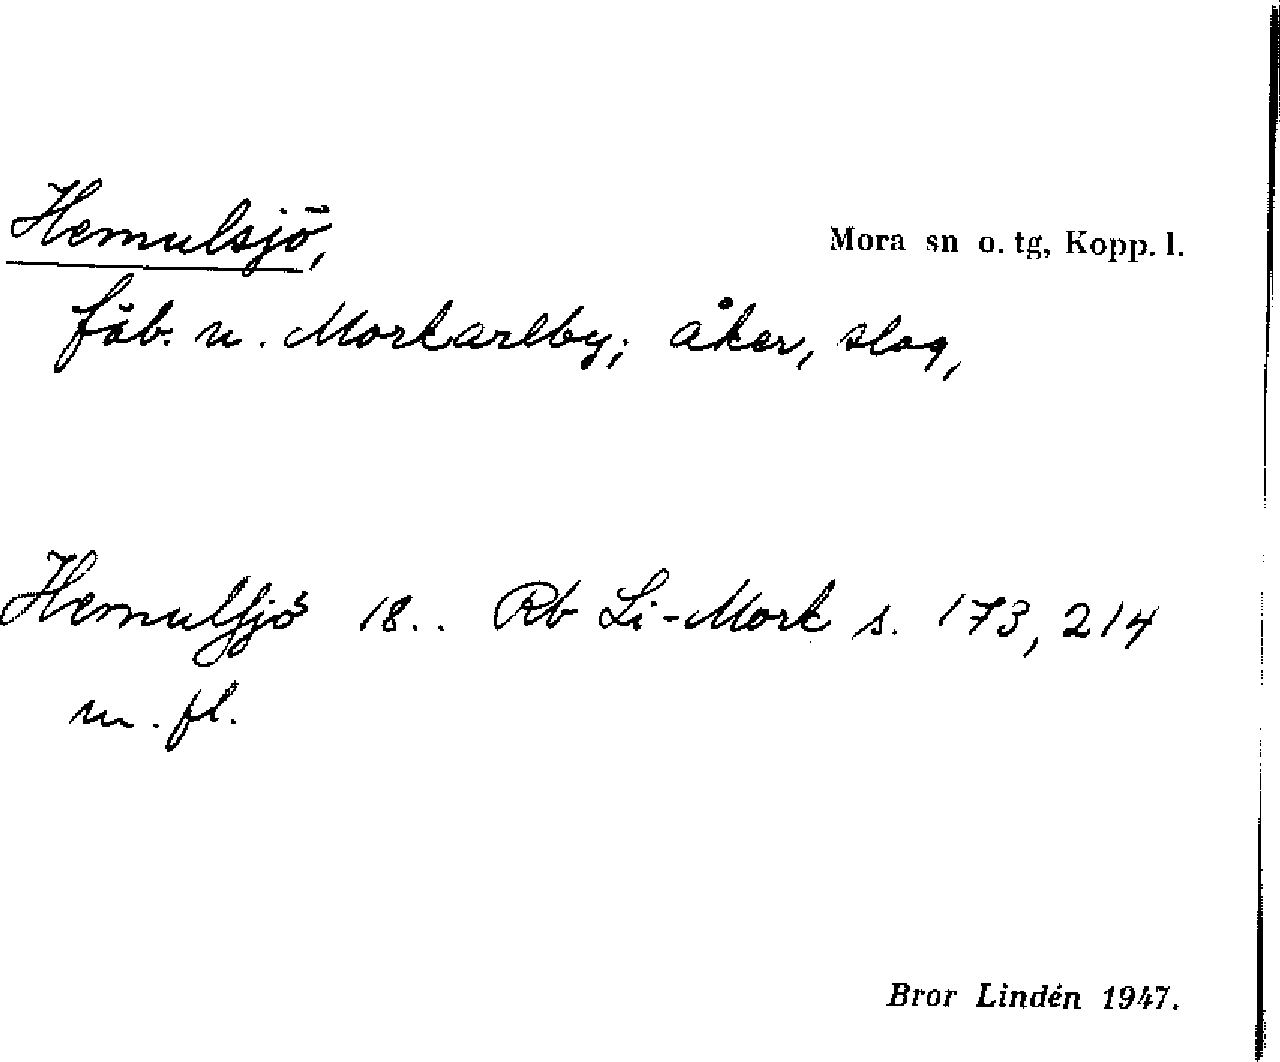 Hemulsjö,
Mora sn o. tg, Kopp. l.
fäb. u. Morkarlby; åker, slog,
Hemulsjö 18.. Rb Li-Mork s. 173, 214
m. fl.
Bror Lindén 1947.